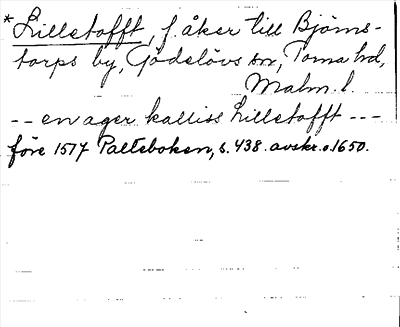 *Lilletofft, f. åker till Björns-
torps by, Gödelövs sn, Torna hd,
Malm. l.
-- en ager kalliss Lilletofft ---
före 1517 Palteboken, s. 438. avskr. o. 1650.